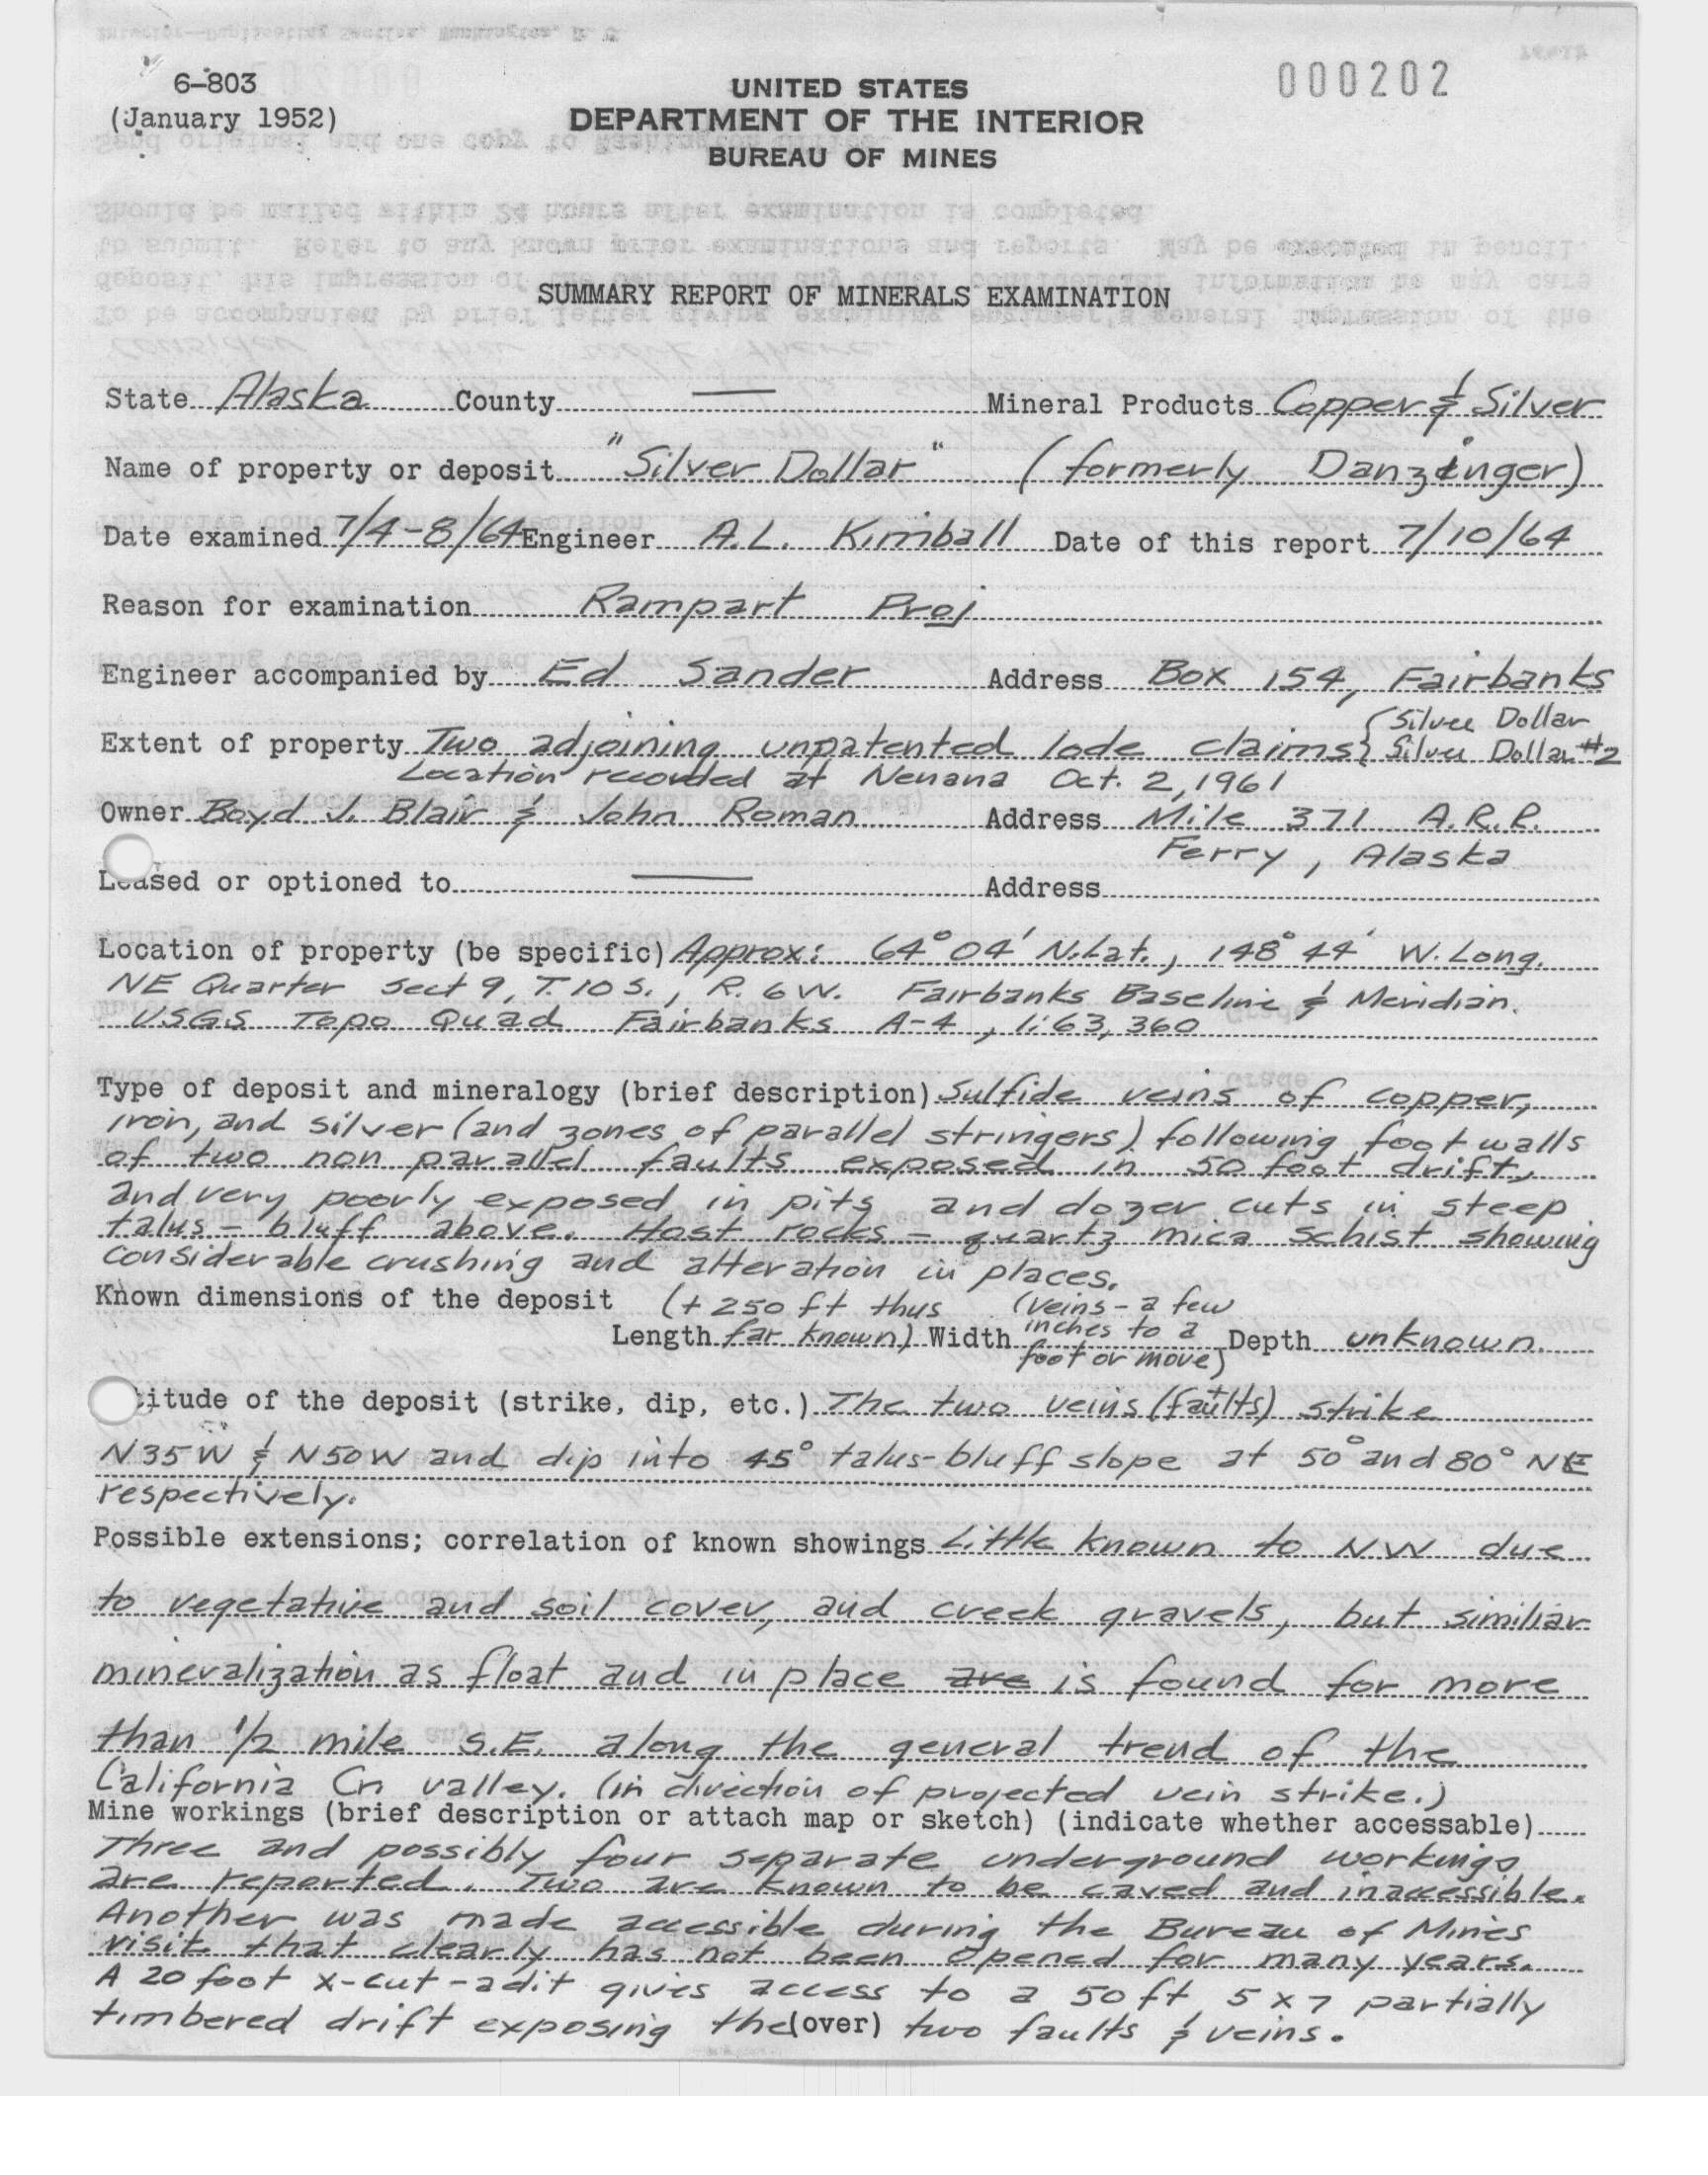 6-803
(January 1952)
000202
UNITED STATES
DEPARTMENT OF THE INTERIOR
BUREAU OF MINES
SUMMARY REPORT OF MINERALS EXAMINATION
State Alaska County — Mineral Products Copper & Silver
Name of property or deposit "Silver Dollar" (formerly Danzinger)
Date examined 7/4-8/64 Engineer A.L. Kimball Date of this report 7/10/64
Reason for examination Rampart Proj
Engineer accompanied by Ed Sander Address Box 154, Fairbanks
Extent of property Two adjoining unpatented lode claims { Silver Dollar
Silver Dollar #2
Location recorded at Nenana Oct. 2, 1961
Owner Boyd J. Blair & John Roman Address Mile 371 A.R.R.
Ferry, Alaska
Leased or optioned to — Address
Location of property (be specific) Approx: 64° 04' N.Lat., 148° 44' W. Long.
NE Quarter Sect 9, T. 10 S., R. 6 W. Fairbanks Baseline & Meridian.
USGS Topo Quad Fairbanks A-4, 1:63,360
Type of deposit and mineralogy (brief description) Sulfide veins of copper,
iron, and silver (and zones of parallel stringers) following foot walls
of two non parallel faults exposed in 50 foot drift,
and very poorly exposed in pits and dozer cuts in steep
talus - bluff above. Host rocks - quartz mica schist showing
considerable crushing and alteration in places.
Known dimensions of the deposit (+ 250 ft thus (veins - a few
Length far known) Width inches to a Depth unknown.
foot or more)
titude of the deposit (strike, dip, etc.) The two veins (+ faults) strike
N35W & N50W and dip into 45° talus-bluff slope at 50° and 80° NE
respectively.
Possible extensions; correlation of known showings Little known to NW due
to vegetative and soil cover, and creek gravels, but similiar
mineralization as float and in place are is found for more
than 1/2 mile S.E. along the general trend of the
California Cr. valley. (in direction of projected vein strike.)
Mine workings (brief description or attach map or sketch) (indicate whether accessable)
Three and possibly four separate underground workings
are reported. Two are known to be caved and inaccessible.
Another was made accessible during the Bureau of Mines
visit that clearly has not been opened for many years.
A 20 foot x-cut-adit gives access to a 50 ft 5 x 7 partially
timbered drift exposing the (over) two faults & veins.